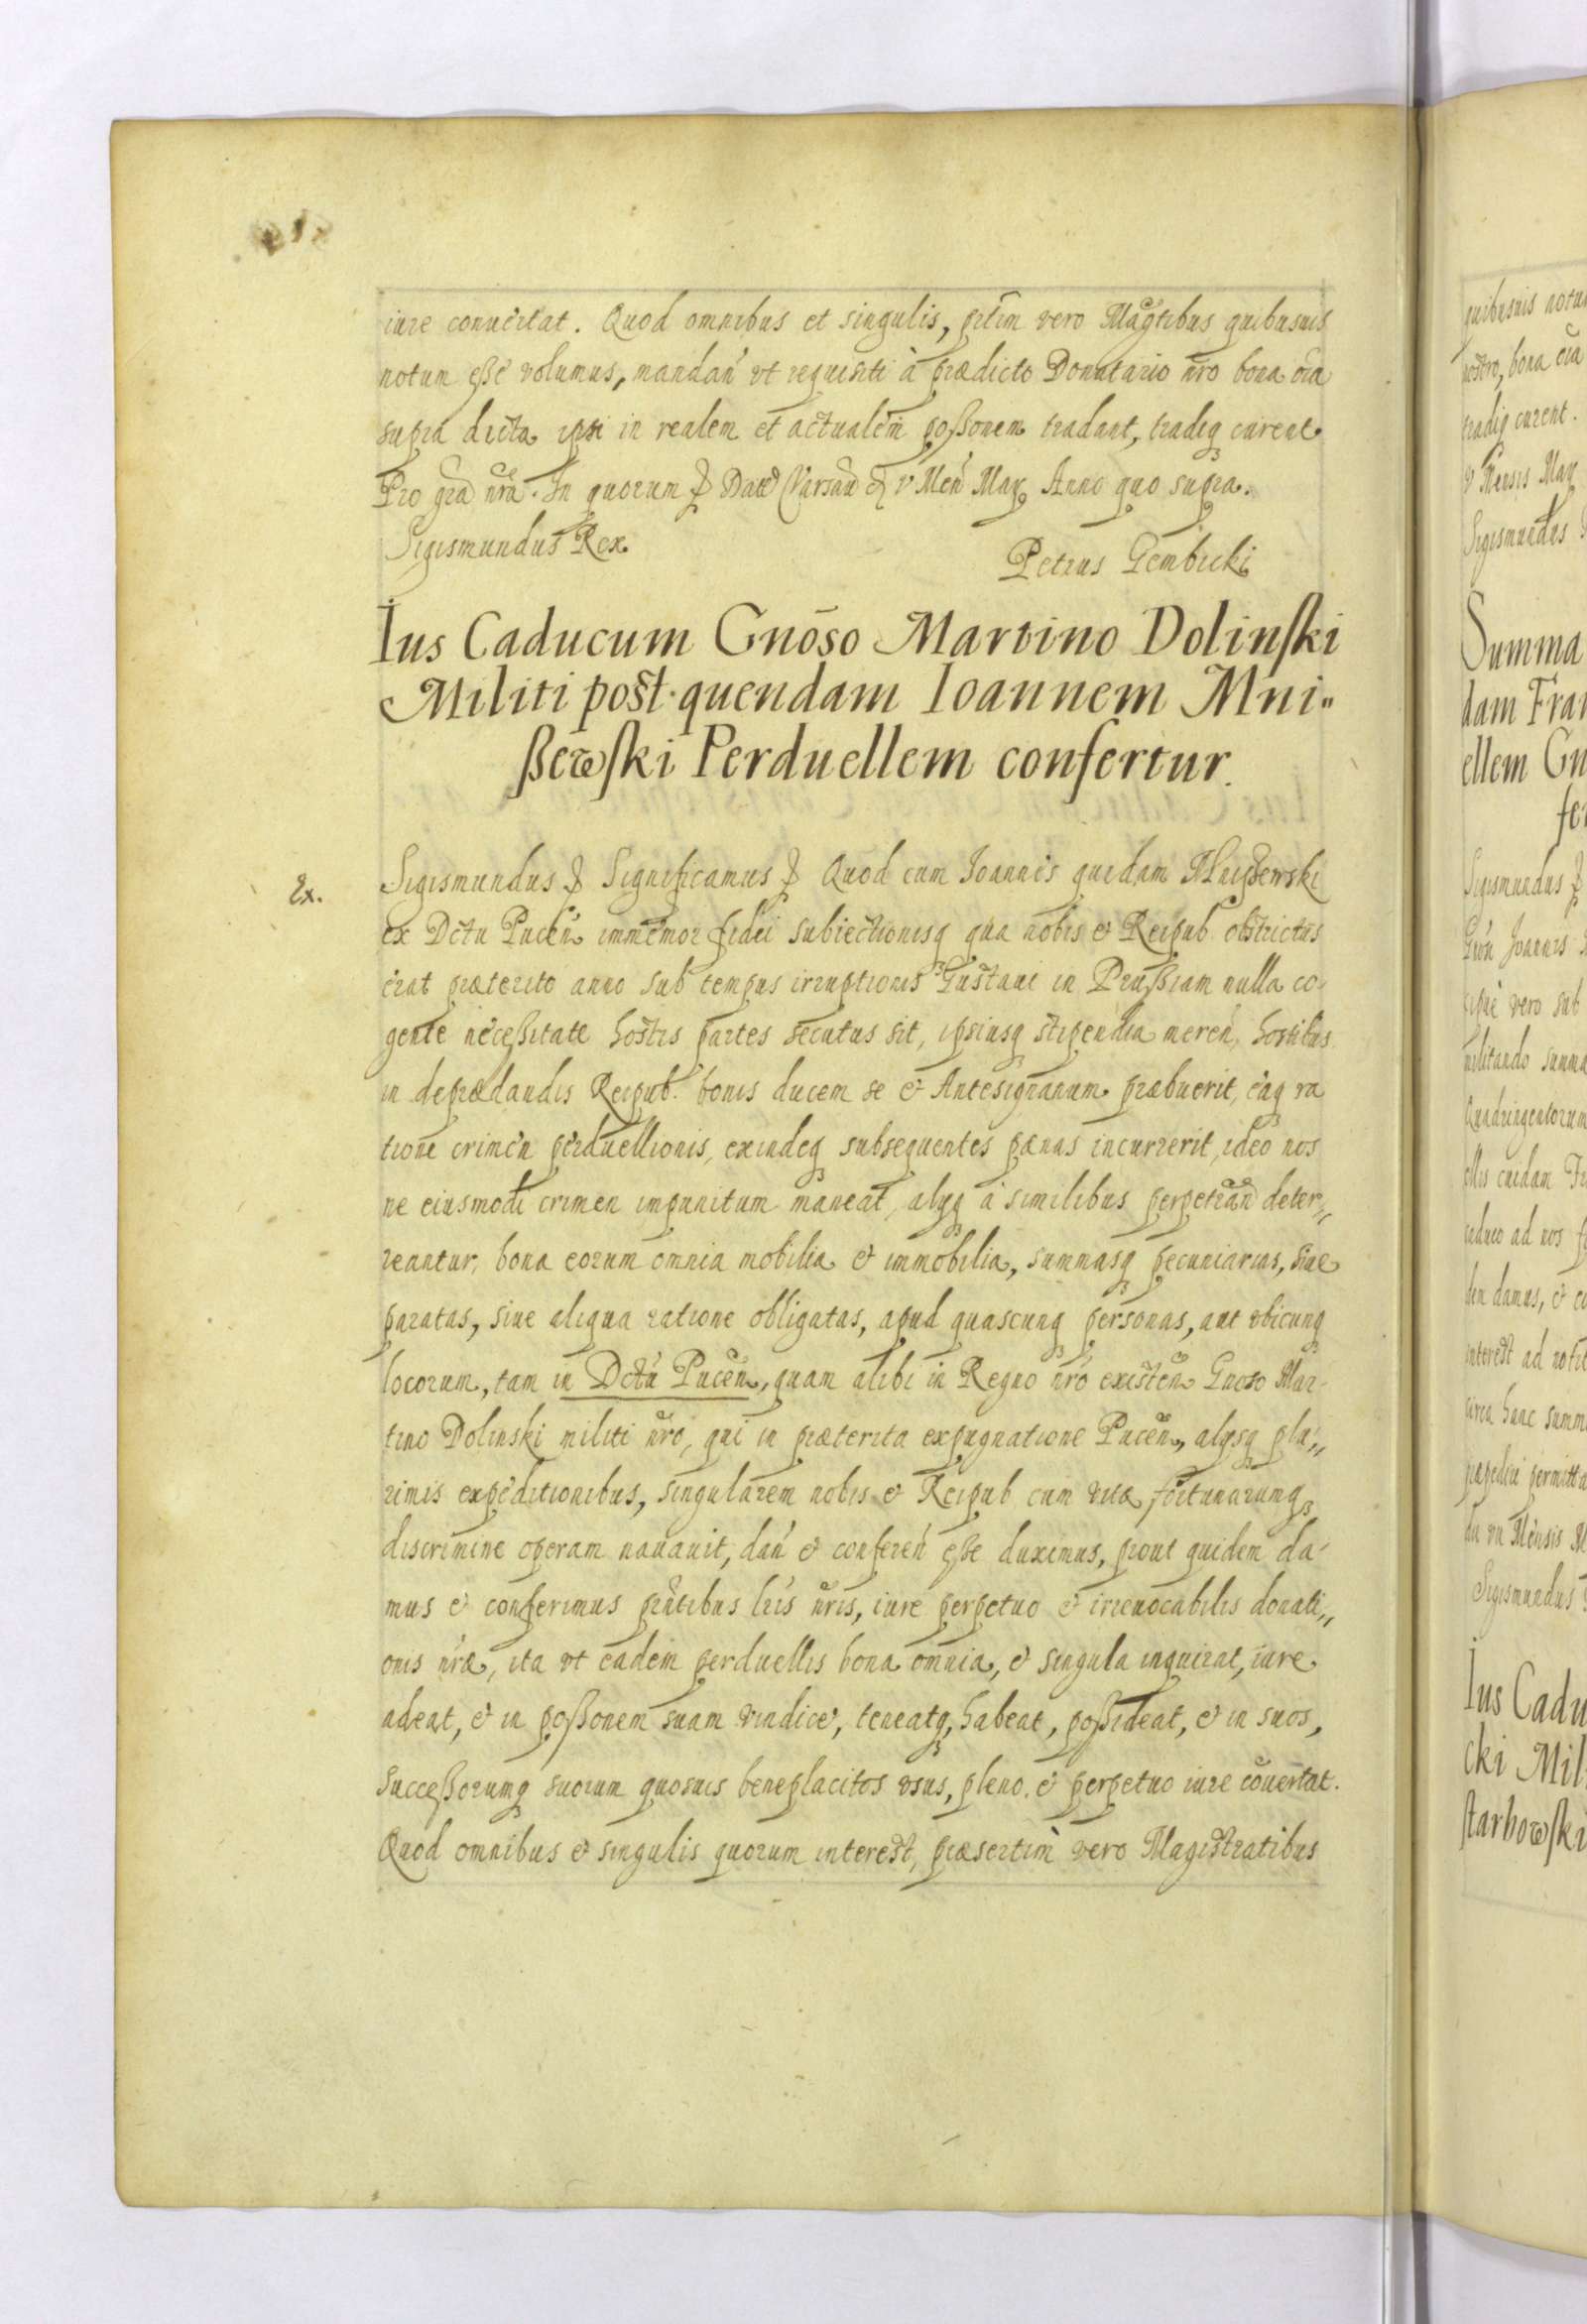 iure conuertat. Quod omnibus et singulis, prtim vero Magtibus quibusuis
notum esse volumus, mandan̄ vt requisiti à prædicto Donatario nro bona oīa
supra dicta ipsi in realem et actualem possonem tradant, tradiq curent
Pro gra nra. In quorum Dat Varsau v Men May Anno quo supra.
Sigismundus Rex
Petrus Gembicki
Ius Caducum Gnōso Martino Dolinski
Militi post quendam Ioannem Mni„
ßewski Perduellem confertur.
Ex.
Sigismundus Significamus Quod cum Joannes quidam Mnißewski
ex Dctu Pucen immemor fidei subiectionisq qua nobis & Reipub obstrictus
erat præterito anno sub tempus irruptionis Gustaui in Prußiam nulla co
gente neceßitate hostis partes secutus sit, ipsiusq stipendia meren, hostibus
in deprædandis Reipub. bonis ducem se & Antesignanum præbuerit, eaq ra
tione crimen perduellionis, exindeq subsequentes pænas incurrerit, ideo nos
ne eiusmodi crimen impunitum maneat, alyq à similibus perpetran deter„
reantur, bona eorum omnia mobilia & immobilia, summasq pecuniarias, siue
paratas, siue aliqua ratione obligatas, apud quascunq personas, aut vbicunq
locorum, tam in Dctu Pucen, quam alibi in Regno nro existen Gnoso Mar
tino Dolinski militi nro, qui in præterita expugnatione Pucen, alysq plu„
rimis expeditionibus, singularem nobis & Reipub cum vitæ fortunarumq
discrimine operam nauauit, dan & conferen eße duximus, prout quidem da
mus & conferimus prntibus lris nris, iure perpetuo & irreuocabilis donati„
onis nræ, ita vt eadem perduellis bona omnia, & singula inquirat, iure
adeat, & in poßonem suam vindicet, teneatq, habeat, poßideat, & in suos,
Succeßorumq suorum quosuis beneplacitos vsus, pleno & perpetuo iure cōuertat.
Quod omnibus & singulis quorum interest, præsertim vero Magistratibus
quibusuis notum
nostro, bona oīa
tradiq curent.
v Mensis May
Sigismundus
Summa
dam Fran
ellem Gn
fer
Sigismundus
Joannis
vero sub
militando summa
Quadringentorum
ellis cuidam Fr
caduco ad nos
damus, &
interest ad noti
circa hanc summ
præpediri permitta
Mensis M
Sigismundus
Ius Cadu
cki Mil
starbowski